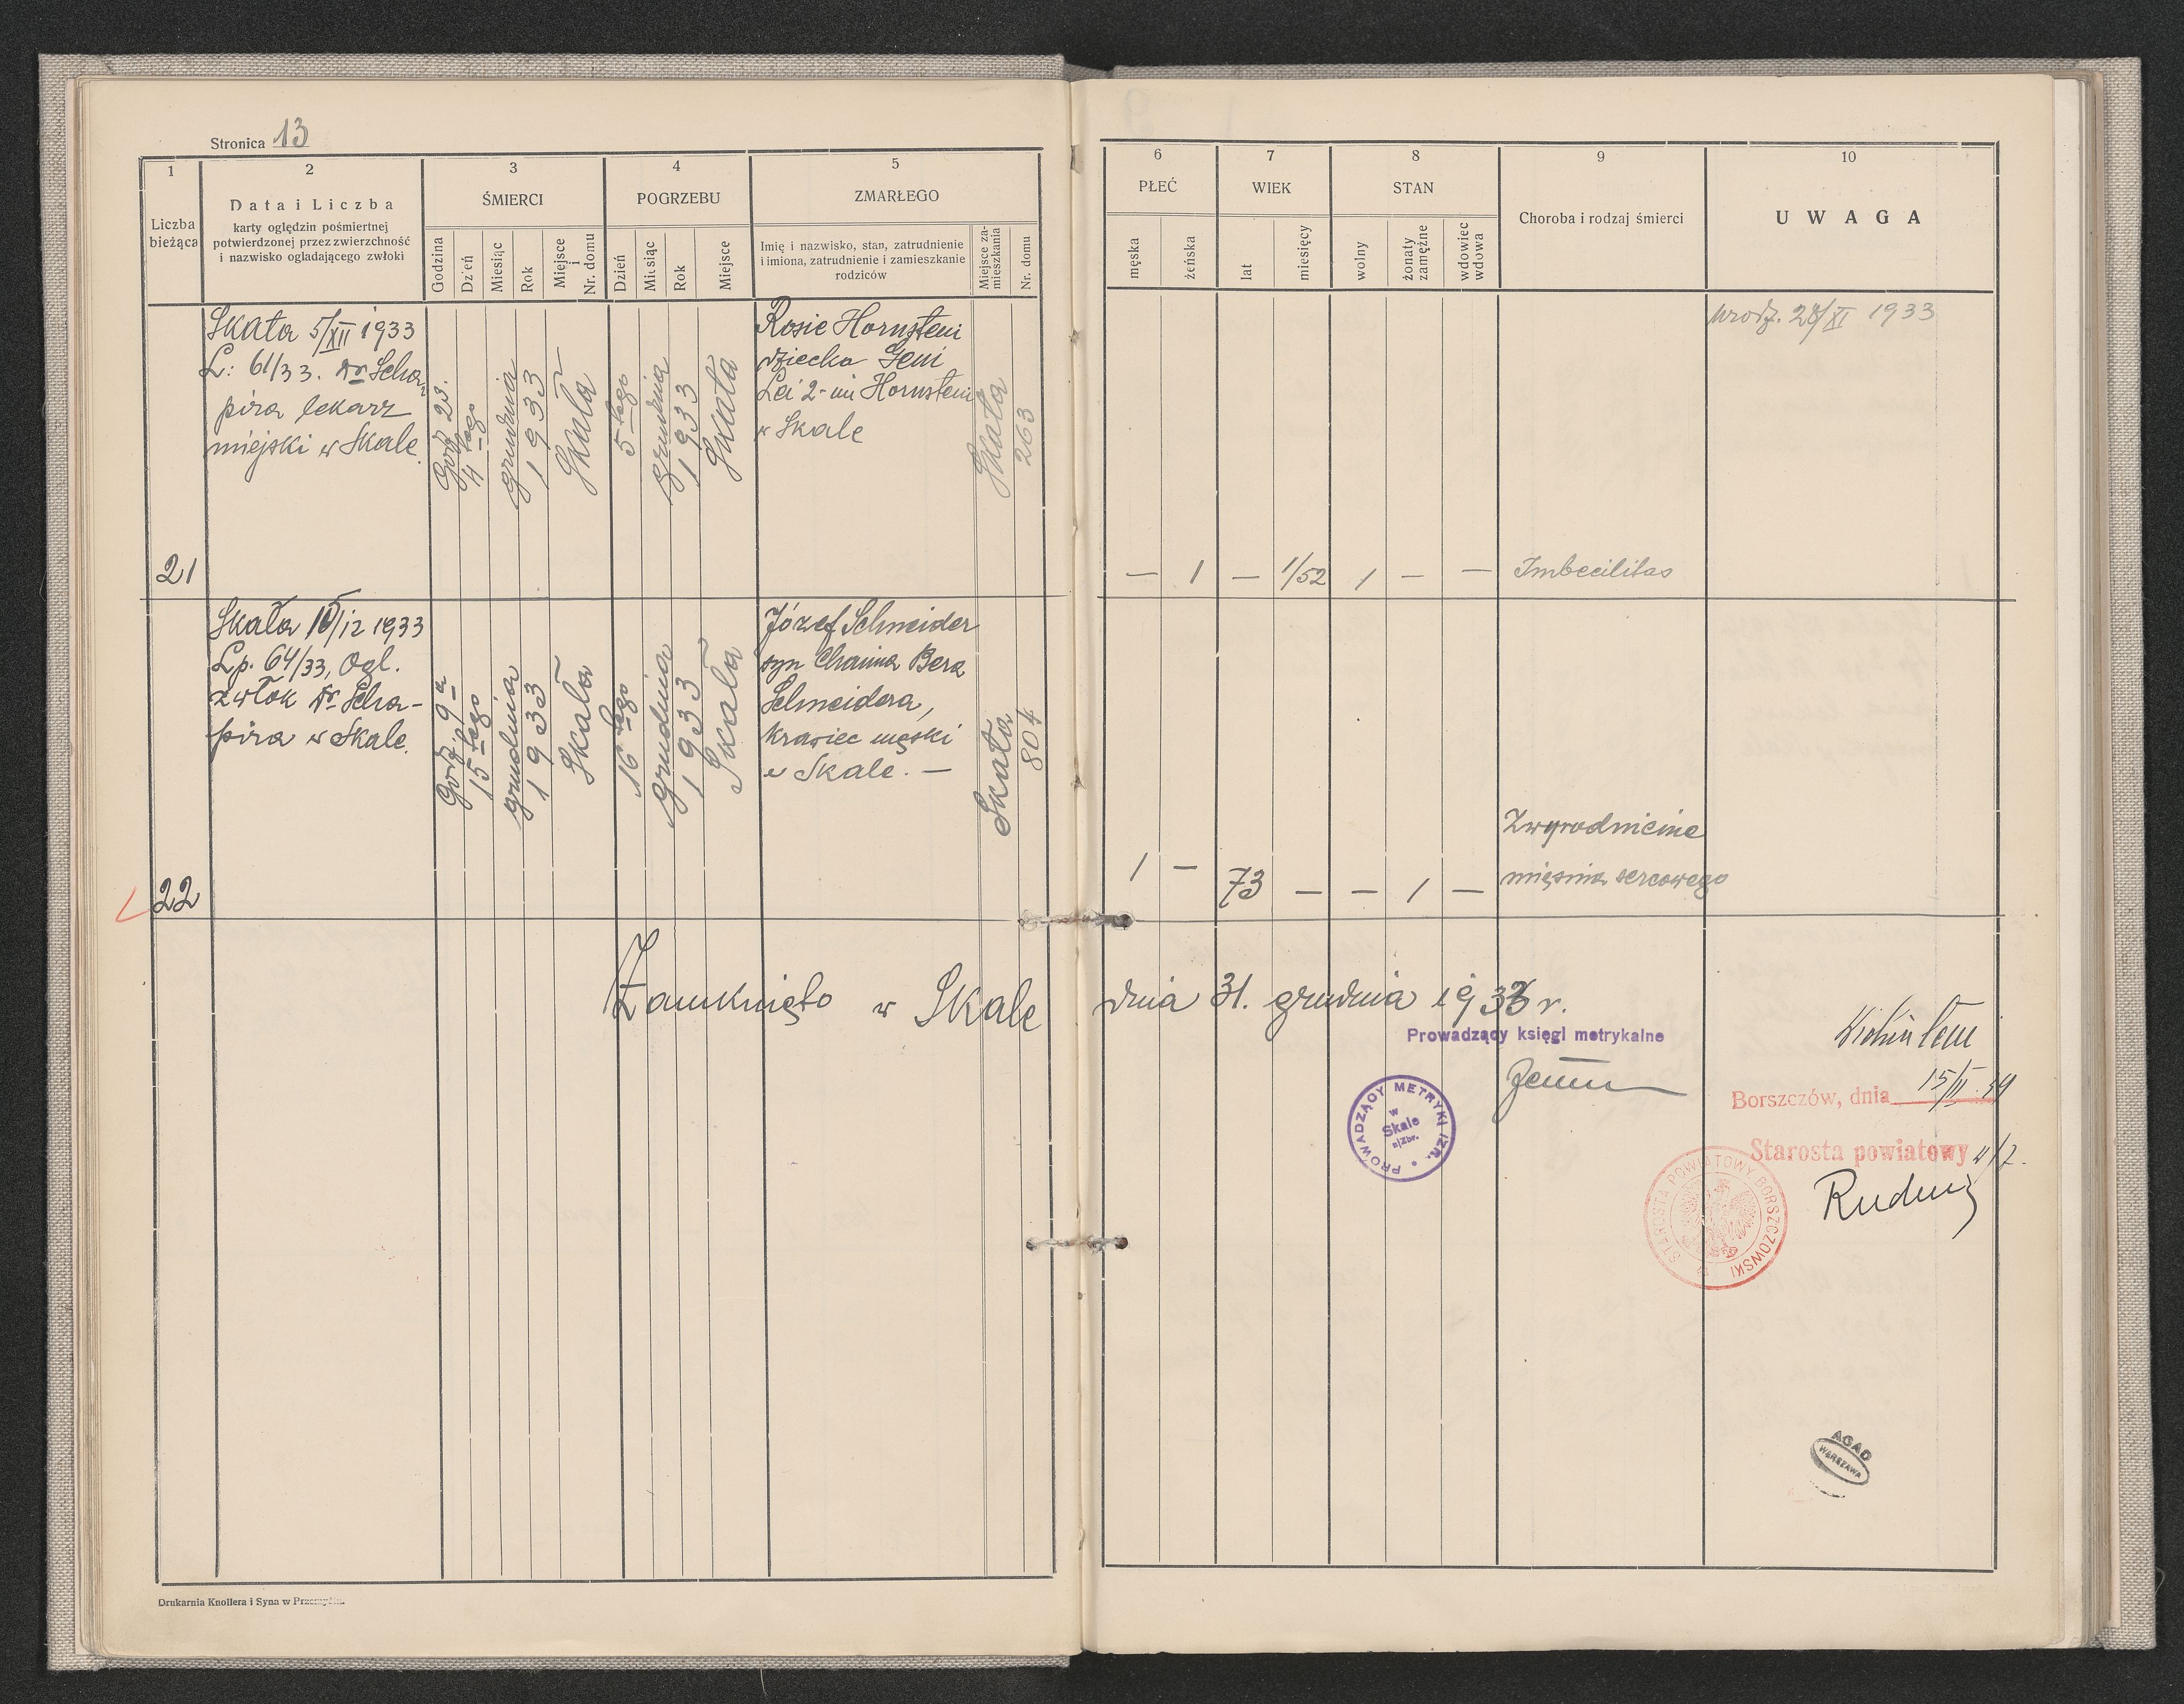 Stronica 13
1
2
3
4
5
Liczba
bieżąca
Data i Liczba
karty oględzin pośmiertnej
potwierdzonej przez zwierzchność
i nazwisko ogladającego zwłoki
ŚMIERCI
Godzina
Dzień
Miesiąc
Rok
Miejsce
i
Nr. domu
POGRZEBU
Dzień
Miesiąc
Rok
Miejsce
ZMARŁEGO
Imię i nazwisko, stan, zatrudnienie
i imiona, zatrudnienie i zamieszkanie
rodziców
Miejsce za-
mieszkania
Nr. domu
6
7
8
9
10
PŁEĆ
męska
żeńska
WIEK
lat
miesięcy
STAN
wolny
żonaty
zamężne
wdowiec
wdowa
Choroba i rodzaj śmierci
UWAGA
21
Skała 5/XII 1933
L: 61/33. Dr Scha-
pira lekarz
miejski w Skale.
Godz 23.
4 tego
grudnia
1933
Skała
5 tego
grudnia
1933
Skała
Rosie Hornstein
dziecko Geni
Lei 2-im Hornstein
w Skale
Skała
263
— 1 — 1/52 1 — —
Imbecilitas
urodz. 28/XI 1933
22
Skała 15/12 1933
Lp. 64/33, Ogl.
zwłok Dr Scha-
pira w Skale.
Godz. 9 a
15 tego
grudnia
1933
Skała
16 tego
grudnia
1933
Skała
Józef Schneider
syn Chaima Bera
Schneidera,
krawiec męski
w Skale. —
Skała
804
1 — 73 — — 1 —
Zwyrodnienie
mięśnia sercowego
Zamknięto w Skale dnia 31. grudnia 1933 r.
Prowadzący księgi metrykalne
PROWADZĄCY METRYKI IZR.
w
Skale
n/Zbr.
Borszczów, dnia 15/II 34
Starosta powiatowy
STAROSTA POWIATOWY BORSZCZOWSKI
AGAD
WARSZAWA
Drukarnia Knollera i Syna w Przemyślu.